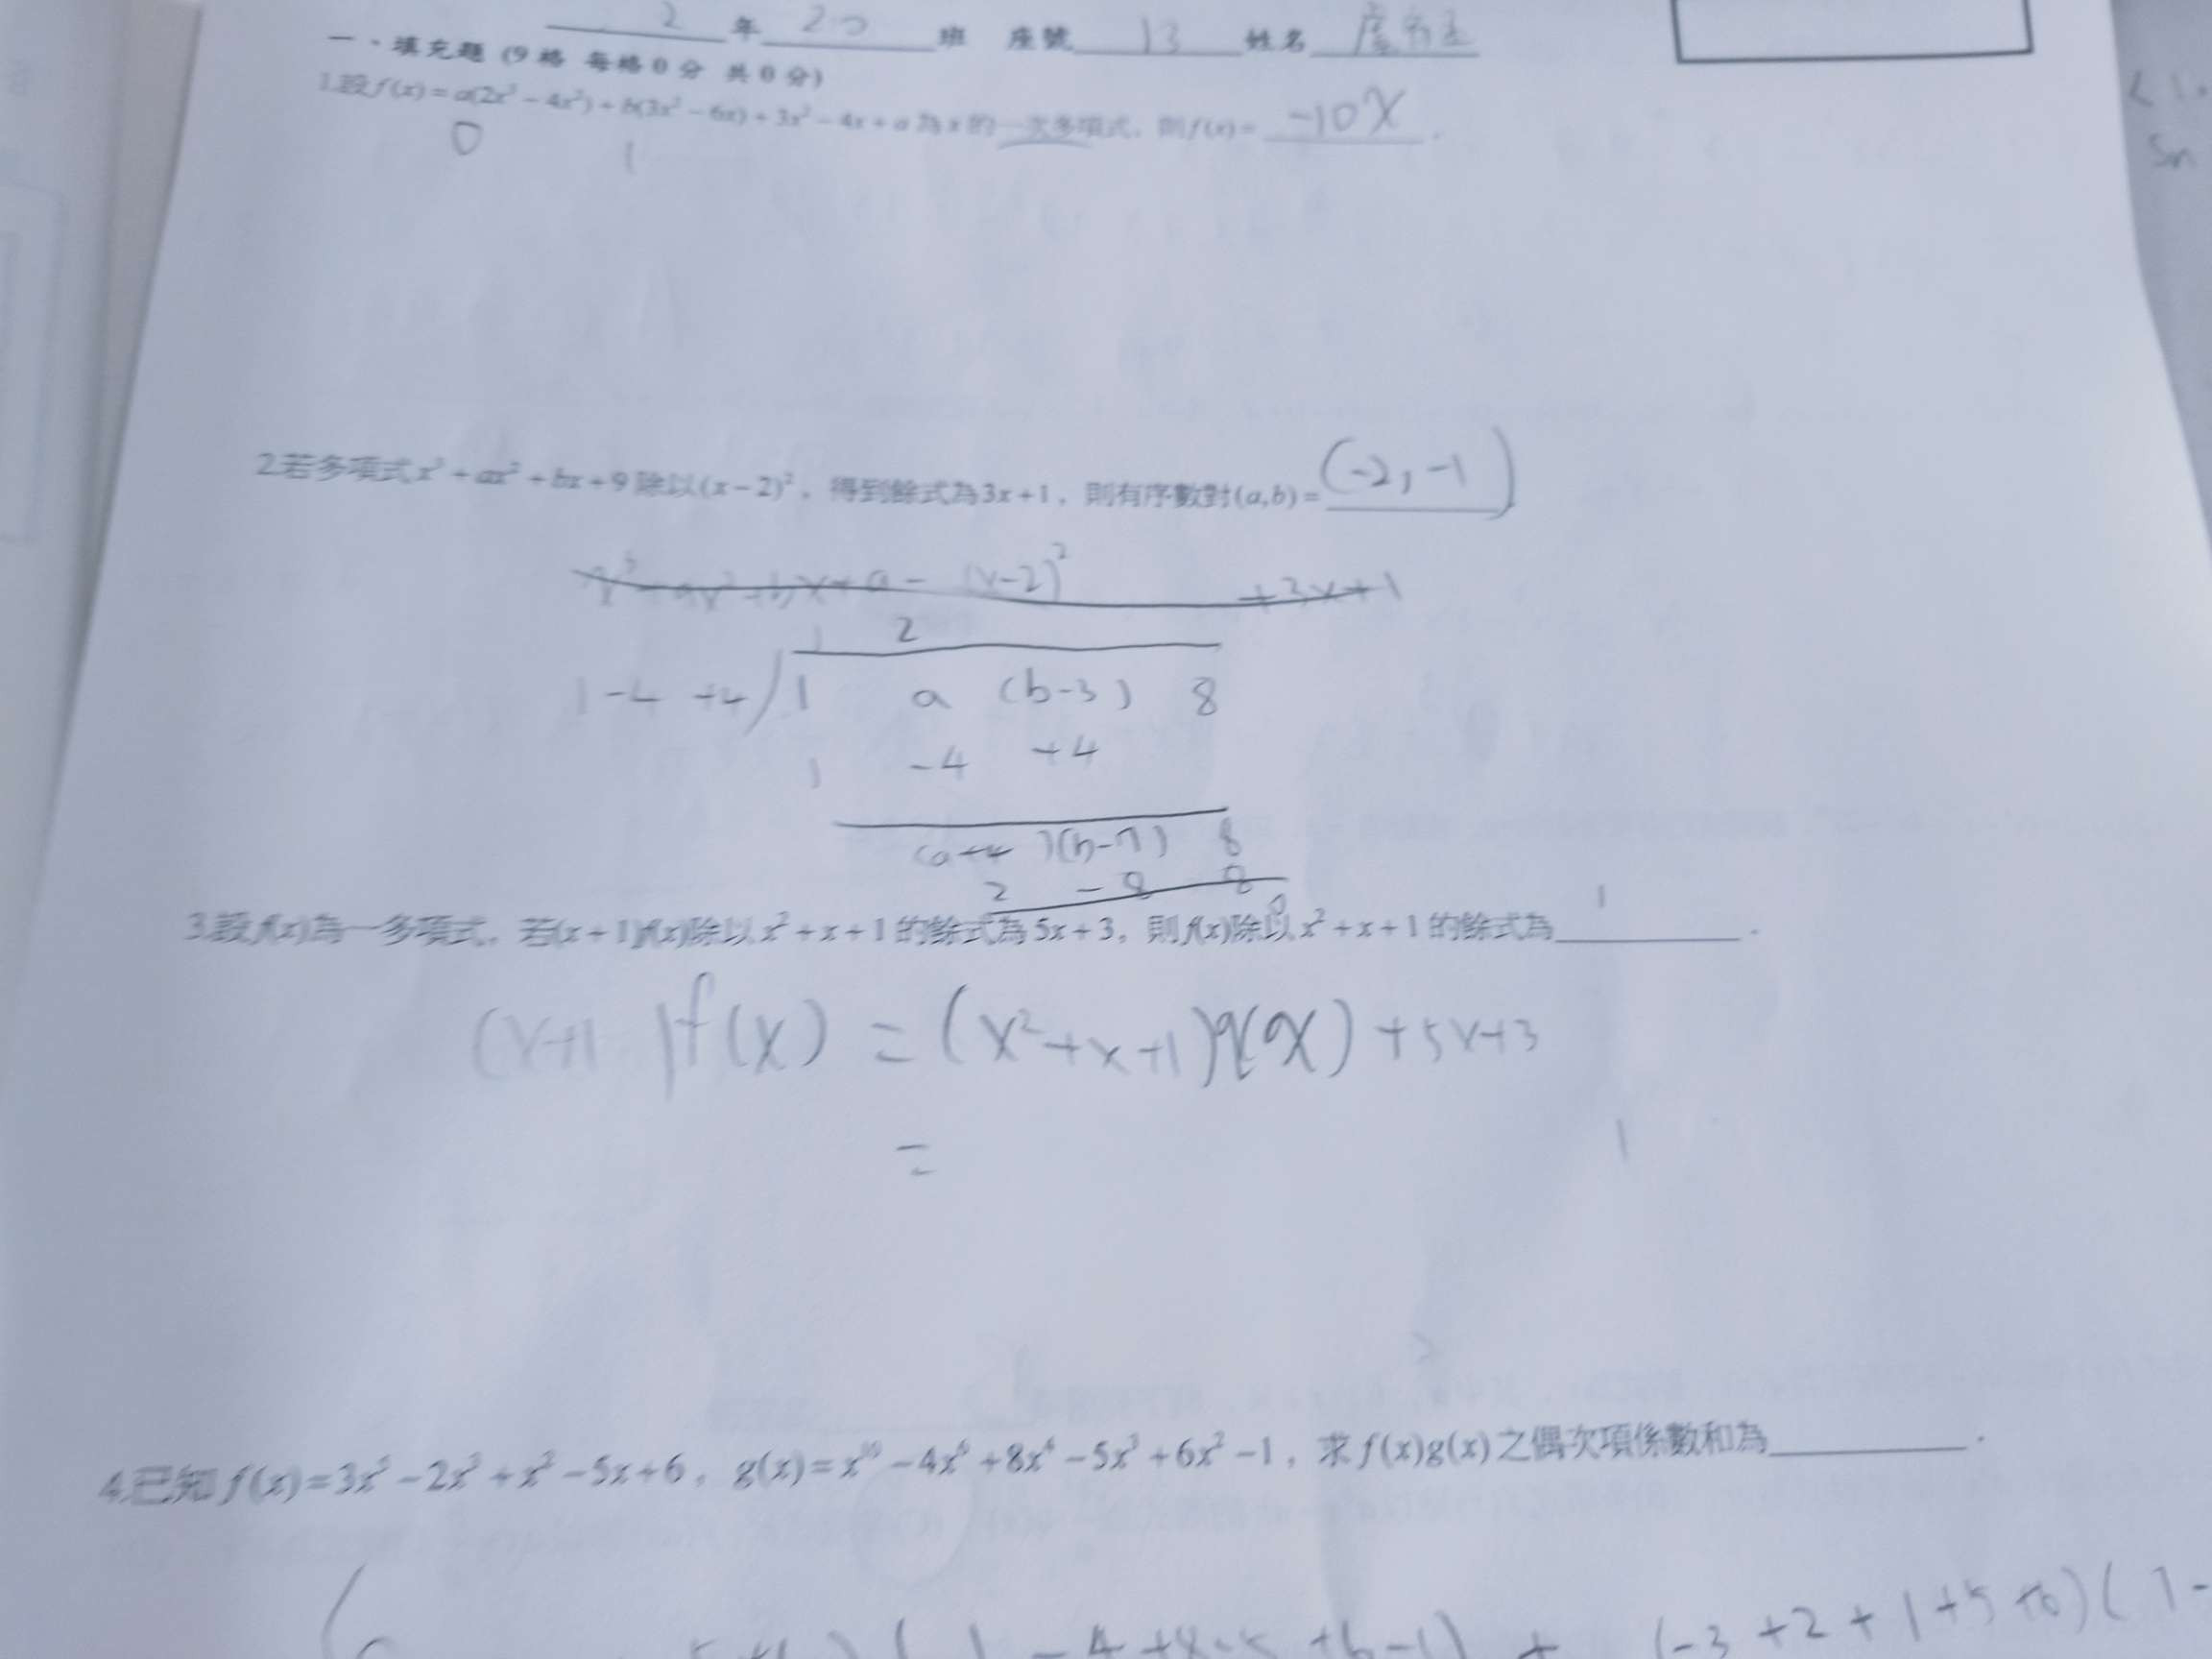 2 年 20 班 座號 13 姓名
一、填充題 (9 格 每格 0 分 共 0 分)
1.設 f(x) = a(2x³ − 4x²) + b(3x² − 6x) + 3x² − 4x + a 為 x 的一次多項式，則 f(x) = -10x .
0 1
2.若多項式 x³ + ax² + bx + 9 除以 (x − 2)²，得到餘式為 3x + 1，則有序數對 (a,b) = (-2, -1)
(x-2)² +3x+1
1 2
1 -4 +4 ) 1 a (b-3) 8
1 -4 +4
(a+4)(b-7) 8
2 -8 8
0
3.設 f(x) 為一多項式，若 (x + 1)f(x) 除以 x² + x + 1 的餘式為 5x + 3，則 f(x) 除以 x² + x + 1 的餘式為 .
(x+1)f(x) = (x²+x+1)q(x) +5x+3
=
4.已知 f(x) = 3x⁵ − 2x³ + x² − 5x + 6，g(x) = x¹⁰ − 4x⁶ + 8x⁴ − 5x³ + 6x² − 1，求 f(x)g(x) 之偶次項係數和為 .
(1-4+8-5+6-1) + (-3+2+1+5+6)(1-